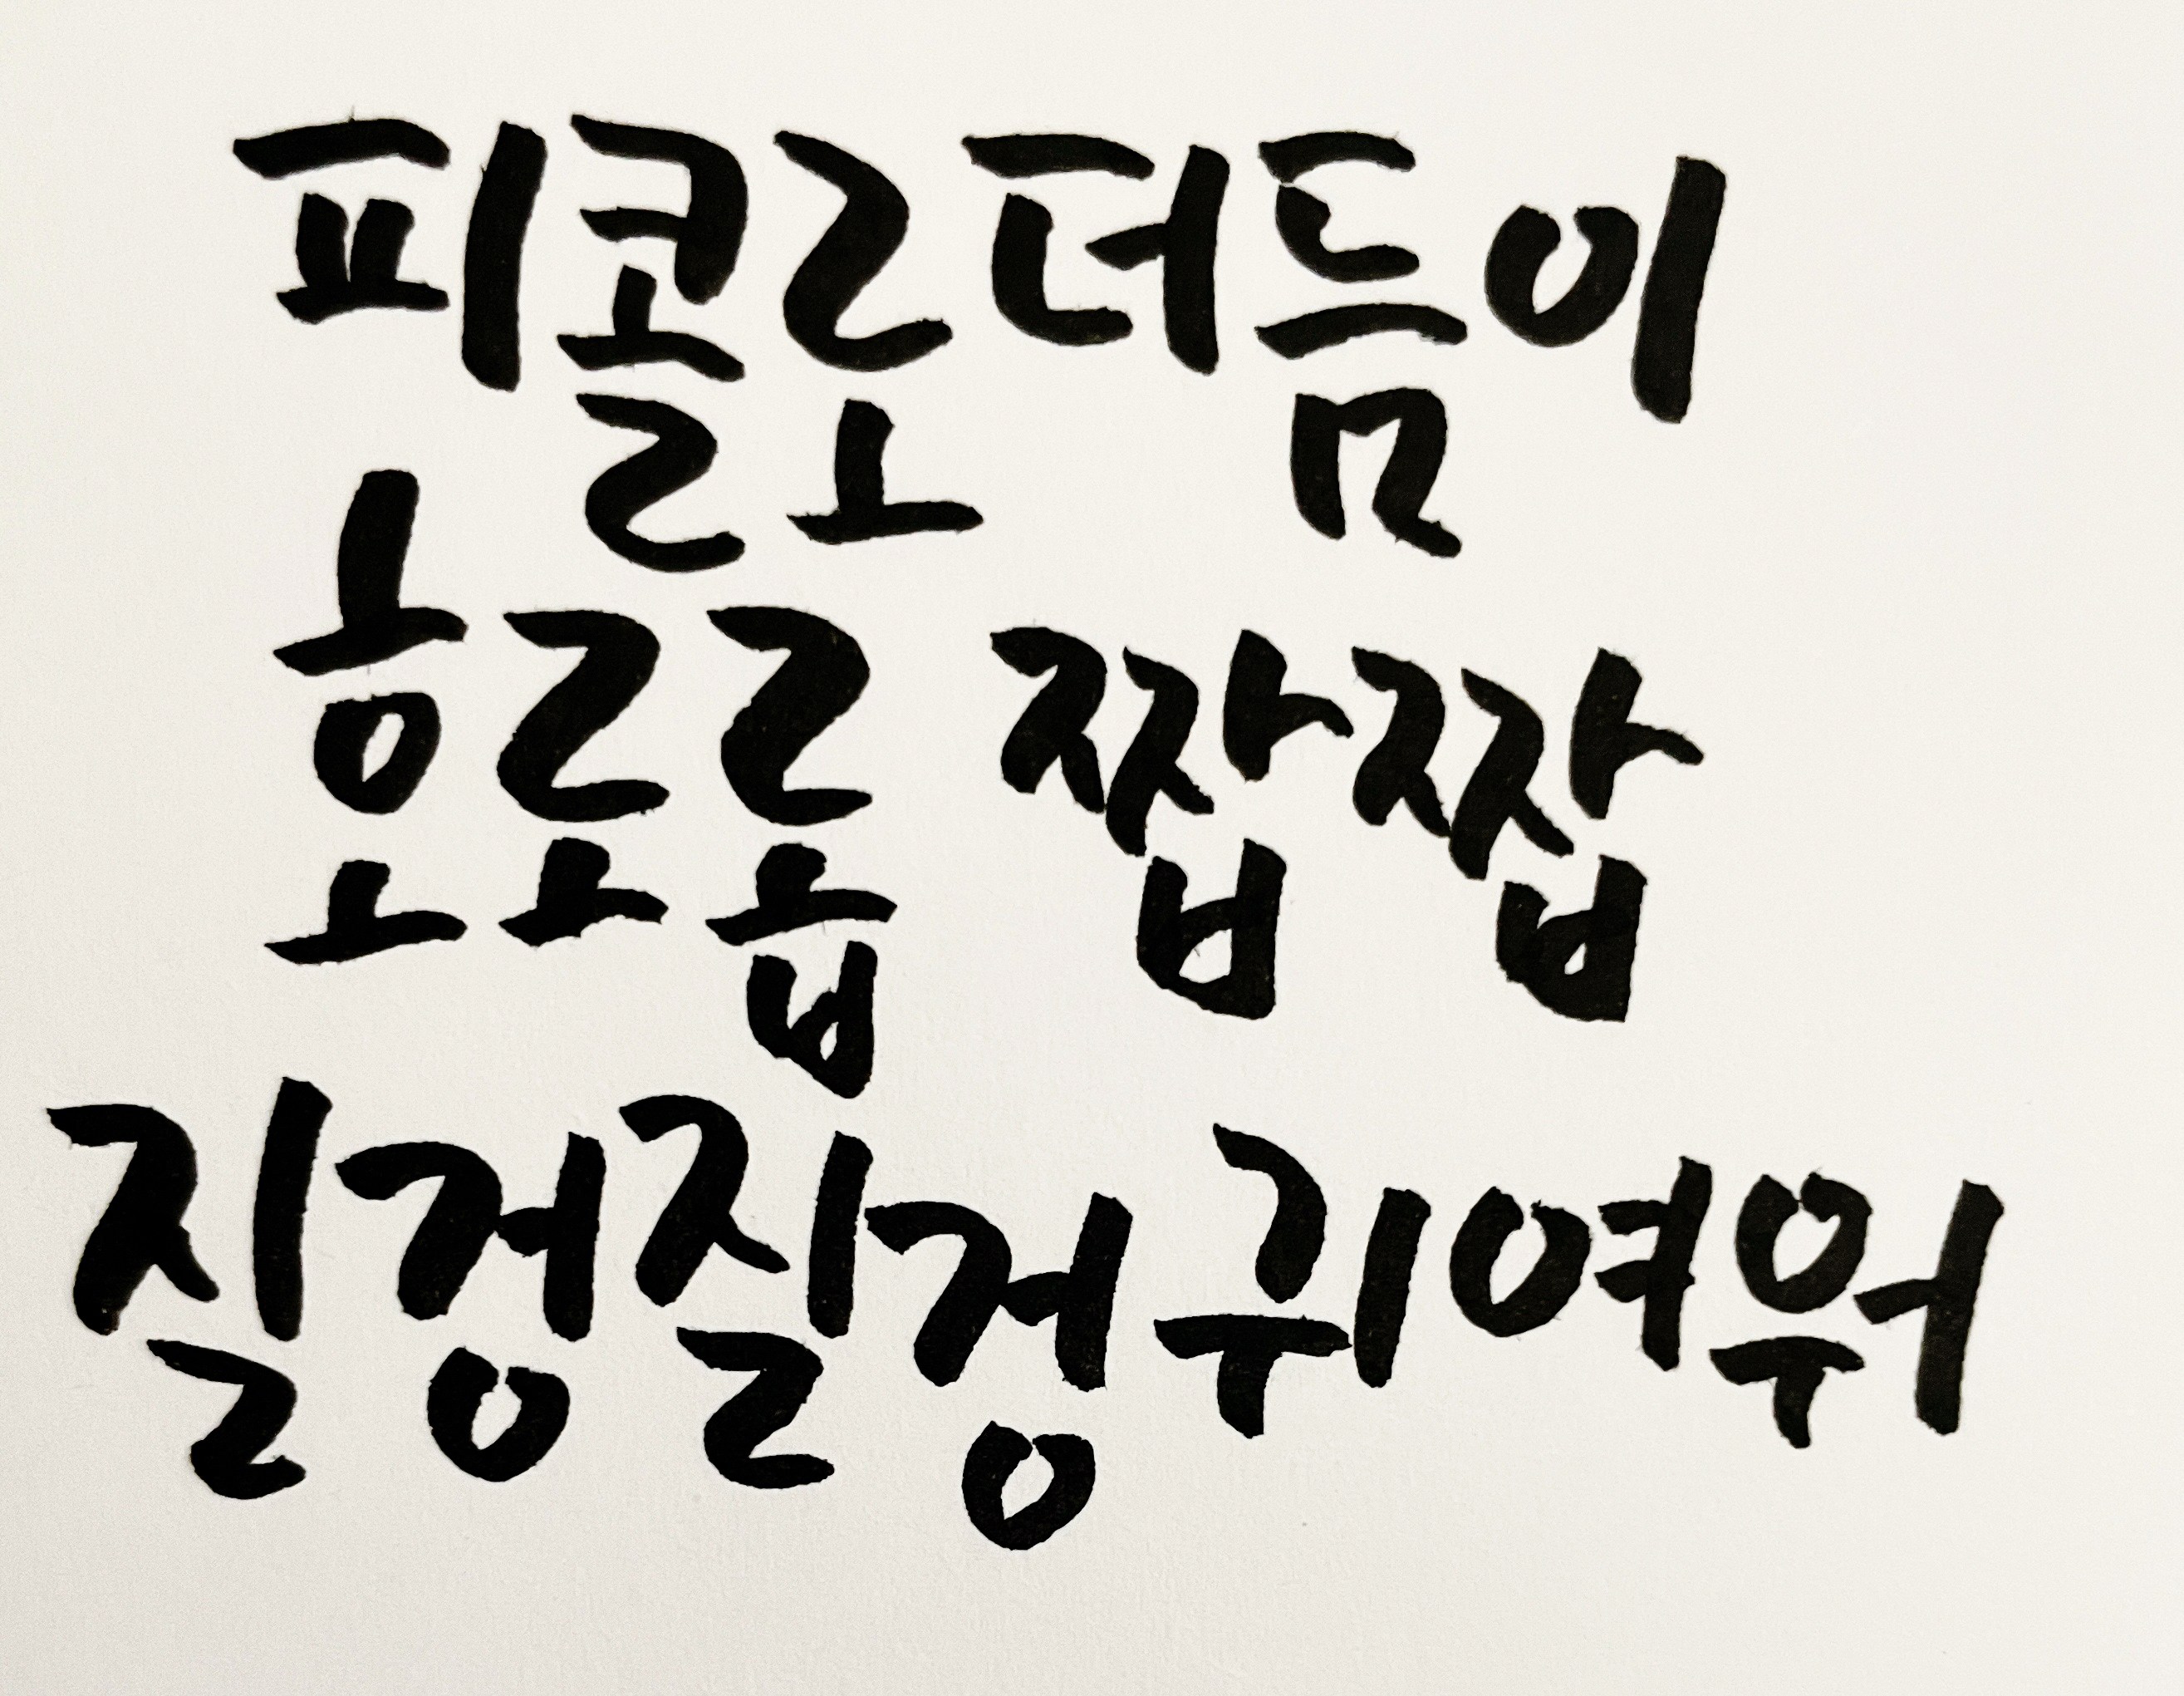 피콜로더듬이
호로롭 짭짭
질겅질겅 귀여워